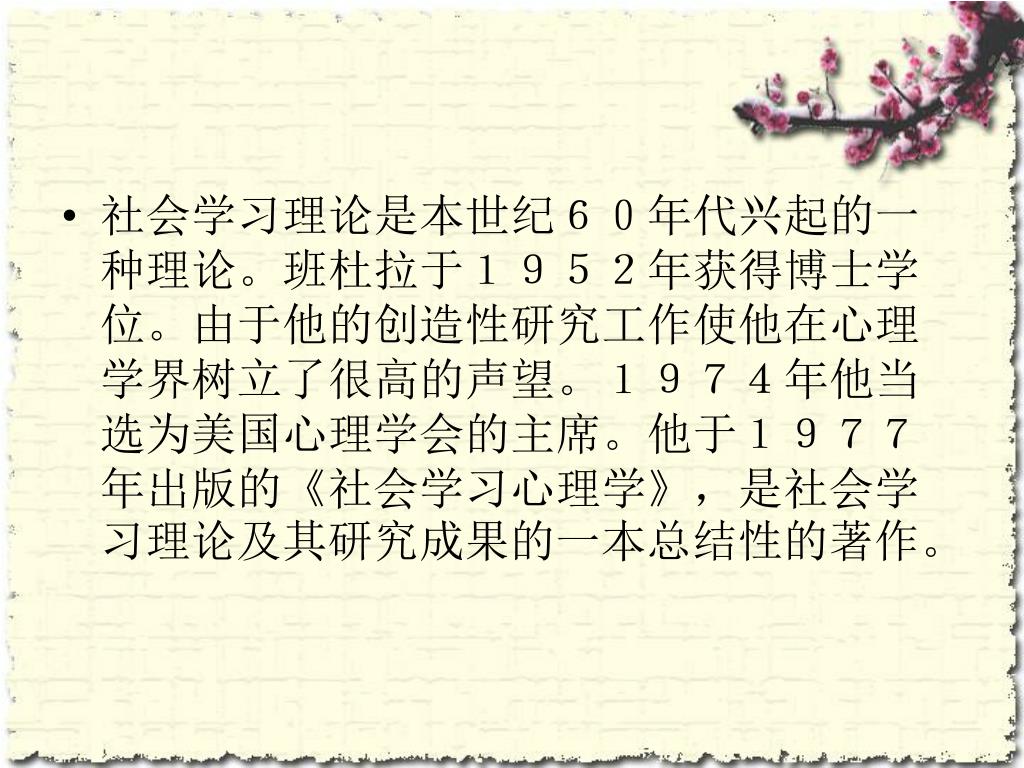 • 社会学习理论是本世纪６０年代兴起的一
种理论。班杜拉于１９５２年获得博士学
位。由于他的创造性研究工作使他在心理
学界树立了很高的声望。１９７４年他当
选为美国心理学会的主席。他于１９７７
年出版的《社会学习心理学》，是社会学
习理论及其研究成果的一本总结性的著作。